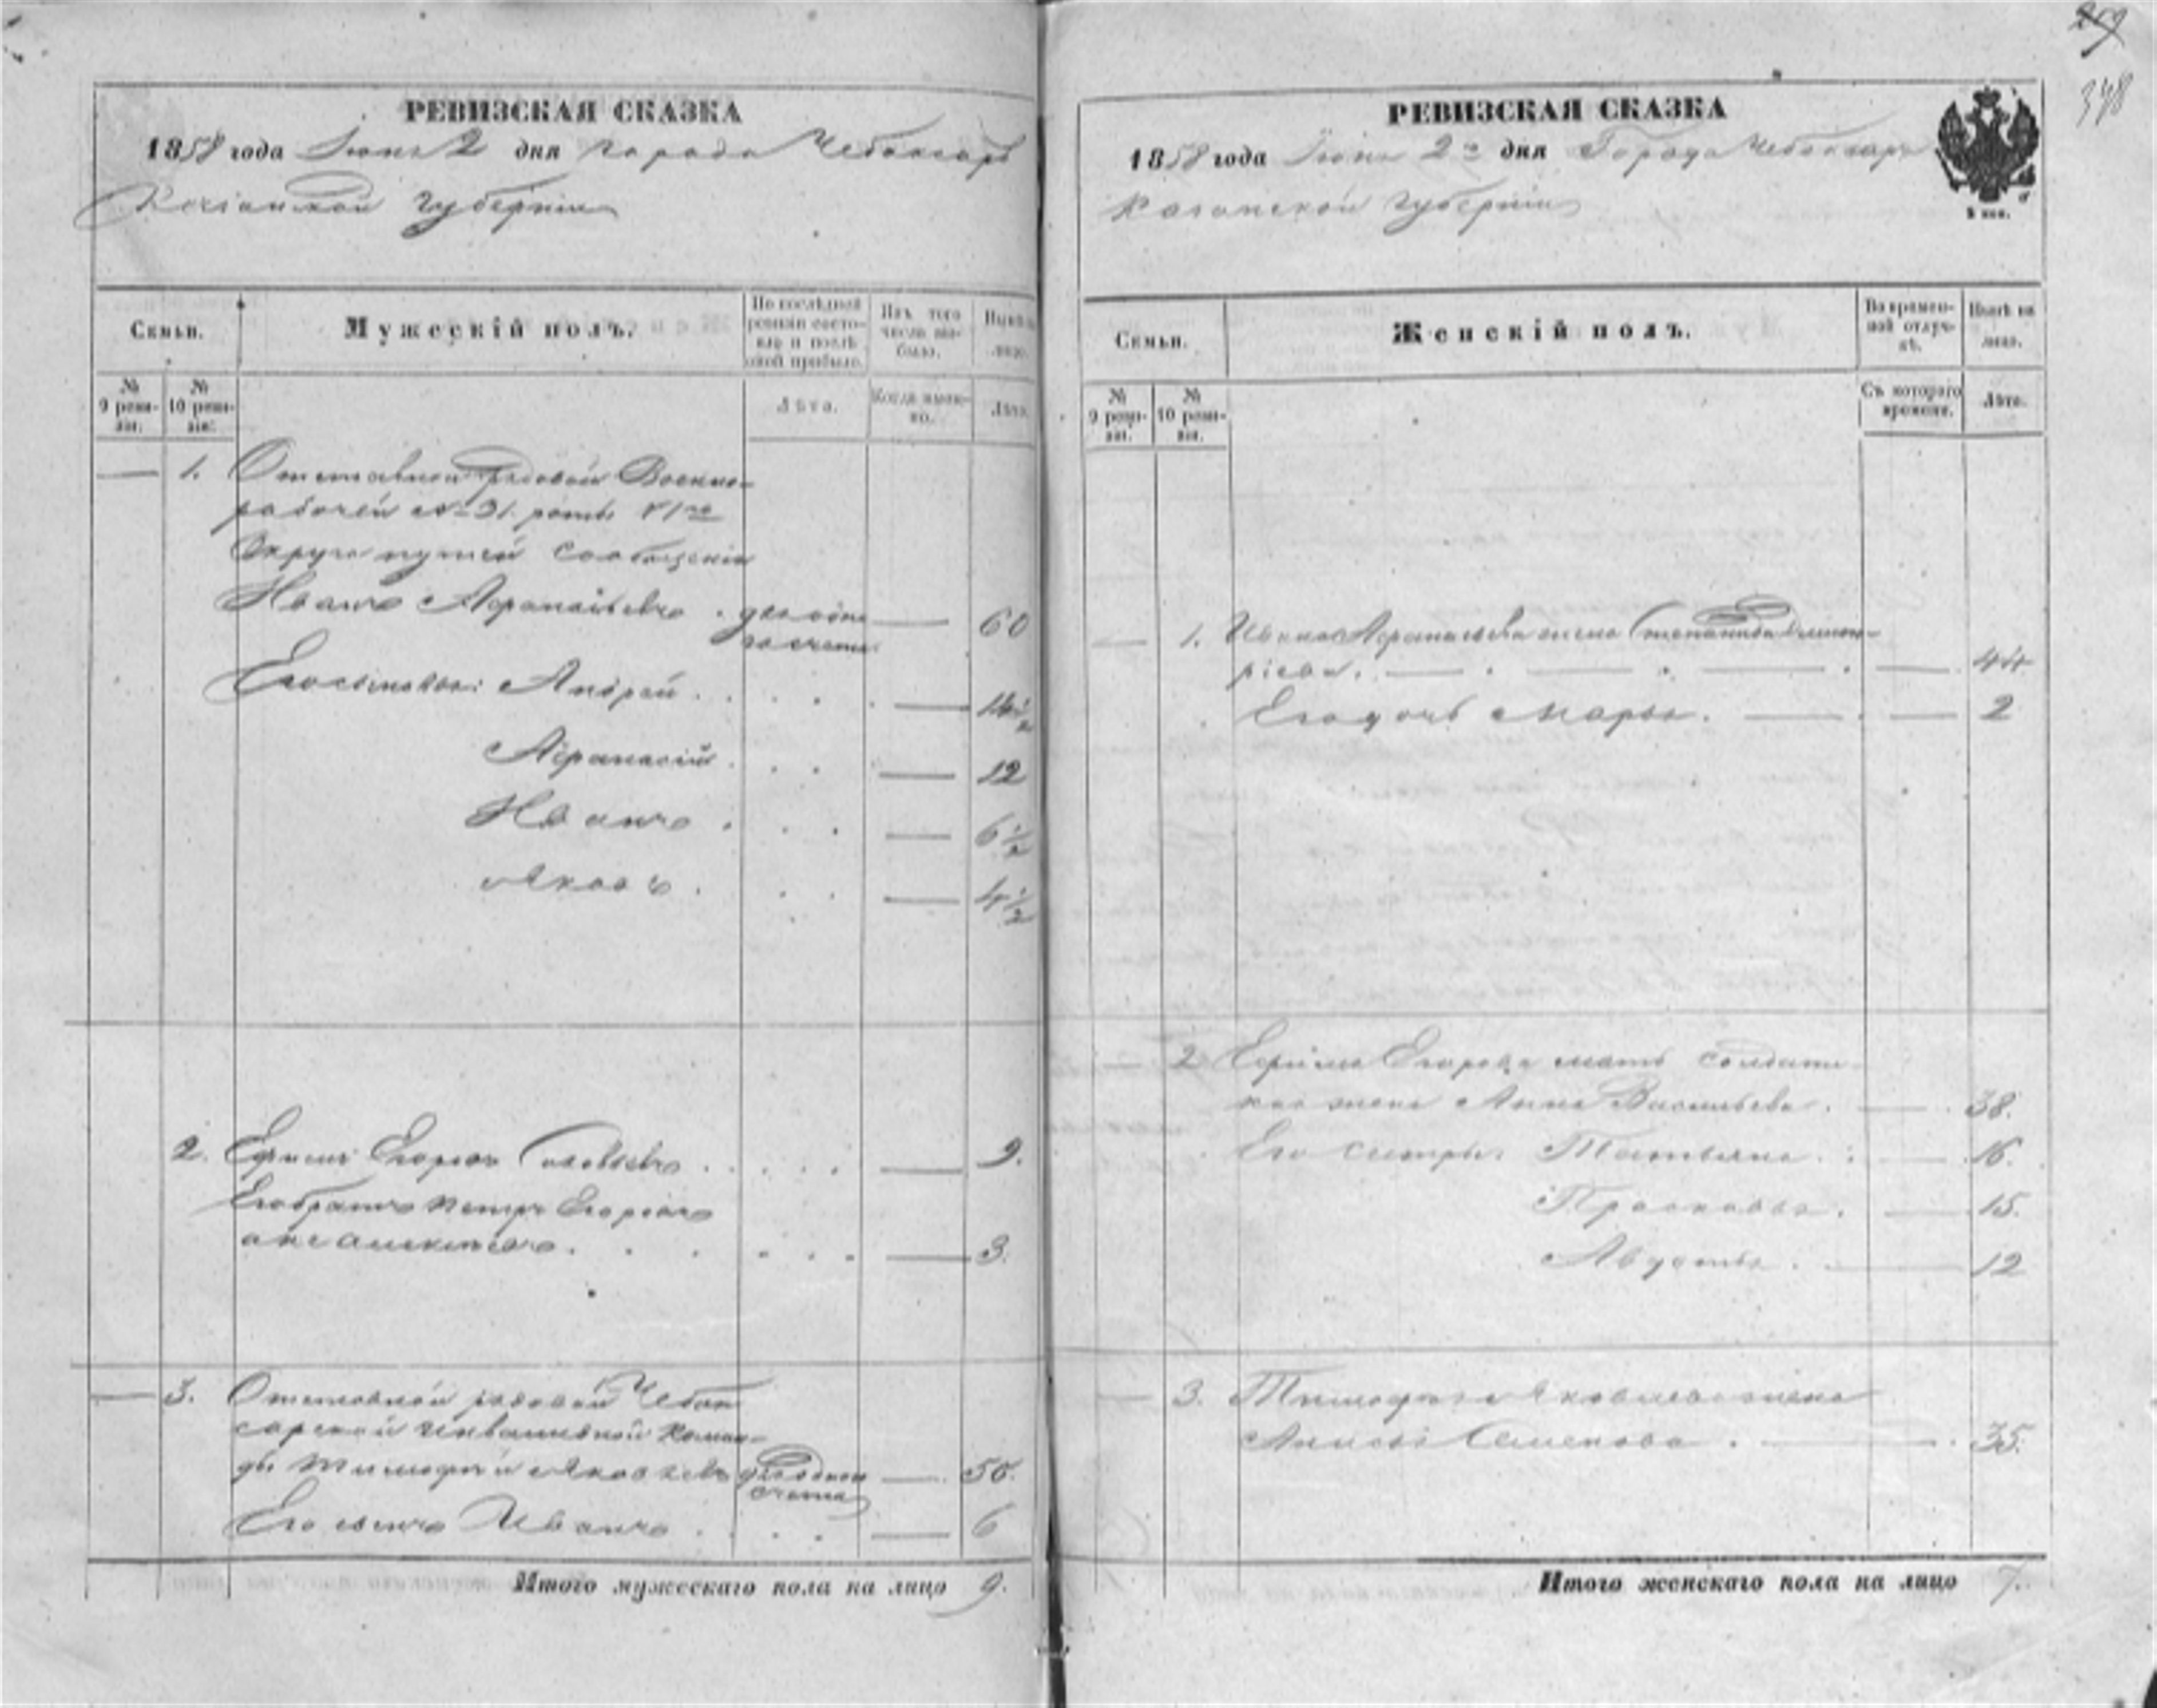 РЕВИЗСКАЯ СКАЗКА
1858 года Июня 2 дня города Чебоксаръ
Казанской губерніи
Семьи.
Мужескій полъ.
По послѣдней ревизіи состояло и послѣ оной прибыло.
Изъ того числа выбыло.
Нынѣ на лицо.
№ 9 ревизіи.
№ 10 ревизіи.
Лѣта.
Когда именно.
Лѣта.
— 1. Отставной рядовой Военно-
рабочей № 31. роты VIго
Округа путей сообщенія
Иванъ Афанасьевъ . — 60
Его сыновья: Андрей . . . . — 14½
Афанасій . . . — 12
Иванъ . . . — 6½
Яковъ . . . — 4½
2. Ефимъ Егоровъ . . . . — 9.
Его братъ Петръ Егоровъ
онъ же Алексѣевъ . . . . . . — 3.
— 3. Отставной рядовой Чебок
сарской инвалидной коман-
ды Тимофѣй Яковлевъ — 50.
Его сынъ Иванъ . . . — 6
Итого мужескаго пола на лицо 9.
259
348
РЕВИЗСКАЯ СКАЗКА
1858 года Июня 2го дня Города Чебоксаръ
Казанской губерніи
Семьи.
Женскій полъ.
Во временной отлучкѣ.
Нынѣ на лицо.
№ 9 ревизіи.
№ 10 ревизіи.
Съ котораго времени.
Лѣта.
— 1. Ивана Афанасьева жена Степанида Дмит-
ріева. — . — . — . — 44
Его дочь Марья. — . — 2
— 2 Ефима Егорова мать солдат
кая жена Анна Васильева . — 38.
Его сестры: Татьяна . : — 16.
Прасковья . — 15.
Августа . — 12
— 3. Тимофея Яковлева жена
Анисья Семенова . — . 35.
Итого женскаго пола на лицо 7.